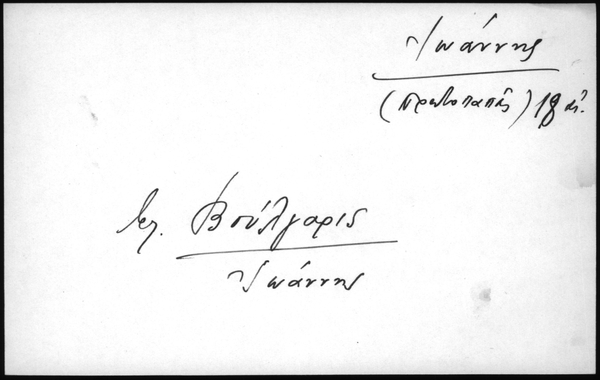 Ἰωάννης
(πρωτοπαπᾶς) 18 αἰ.
βλ. Βούλγαρις
Ἰωάννης